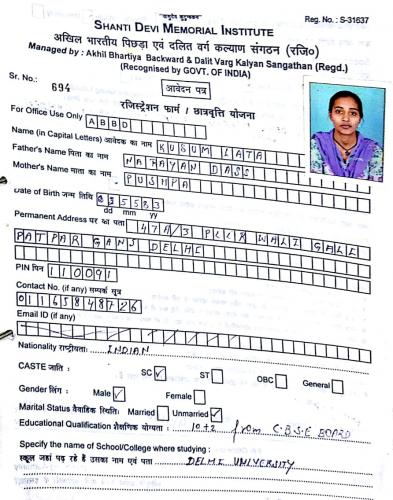 "वसुदैव कुटुम्बकम"
Reg. No. : S-31637
SHANTI DEVI MEMORIAL INSTITUTE
अखिल भारतीय पिछड़ा एवं दलित वर्ग कल्याण संगठन (रजि०)
Managed by : Akhil Bhartiya Backward & Dalit Varg Kalyan Sangathan (Regd.)
(Recognised by GOVT. OF INDIA)
Sr. No.: 694
आवेदन पत्र
रजिस्ट्रेशन फार्म / छात्रवृत्ति योजना
For Office Use Only ABBD
Name (in Capital Letters) आवेदक का नाम KUSUM LATA
Father's Name पिता का नाम NARAYAN DASS
Mother's Name माता का नाम PUSHPA
Date of Birth जन्म तिथि
dd mm yy
Permanent Address घर का पता 47A/3 PLLR WALI GALE
PATPAR GANJ DELHI
PIN पिन 110091
Contact No. (if any) सम्पर्क सूत्र
01165848726
Email ID (if any)
Nationality राष्ट्रीयता: INDIAN
CASTE जाति : SC ✓ ST OBC General
Gender लिंग : Male ✓ Female
Marital Status वैवाहिक स्थिति: Married Unmarried ✓
Educational Qualification शैक्षणिक योग्यता : 10+2 from C.B.S.E BOARD
Specify the name of School/College where studying :
स्कूल जहां पढ़ रहे हैं उसका नाम एवं पता DELHI UNIVERSITY